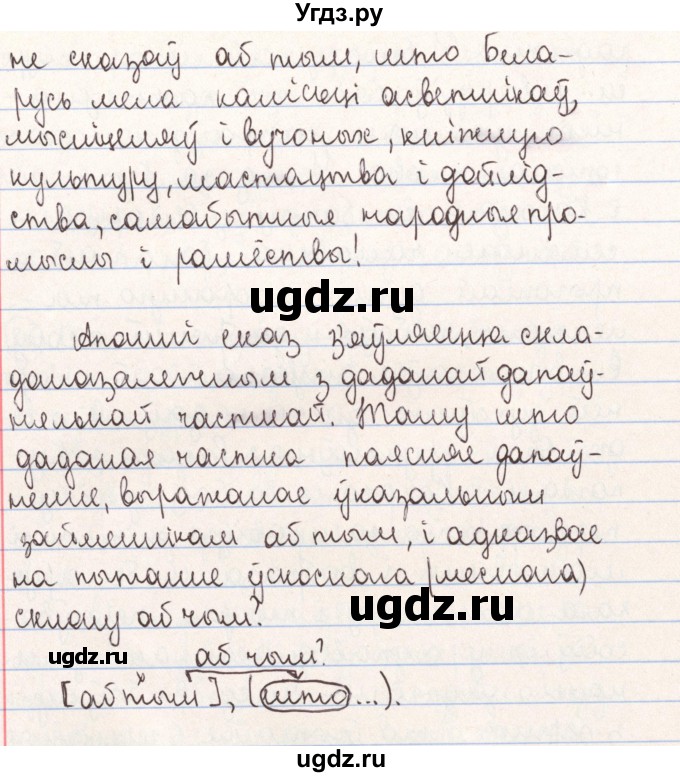 Угдз.ру
не сказаў аб тым, што Бела-
русь мела калісьці асветнікаў,
мысліцеляў і вучоных, кніжную
культуру, мастацтва і дойлід-
ства, самабытныя народныя про-
мыслы і рамёствы!
ugdz.ru
Апошні сказ з'яўляецца скла-
даназалежным з даданай дапаў-
няльнай часткай. Таму што
даданая частка паясняе дапаў-
ненне, выражанае ўказальным
займеннікам аб тым, і адказвае
на пытанне ўскоснага (меснага)
склону аб чым?
ugdz.ru
ugdz.ru
аб чым?
[аб тым], (што ...).
ugdz.ru